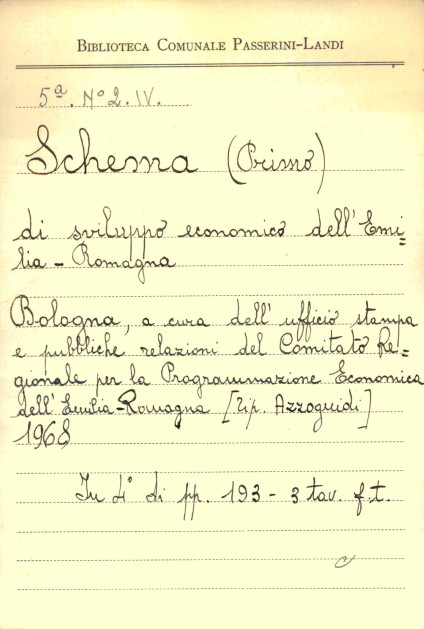 BIBLIOTECA COMUNALE PASSERINI-LANDI
5ª. Nº 2. IV.
Schema (Primo)
di sviluppo economico dell'Emi=
lia - Romagna
Bologna, a cura dell'ufficio stampa
e pubbliche relazioni del Comitato Re=
gionale per la Programmazione Economica
dell'Emilia-Romagna [Tip. Azzoguidi]
1968
In 4° di pp. 193 - 3 tav. f.t.